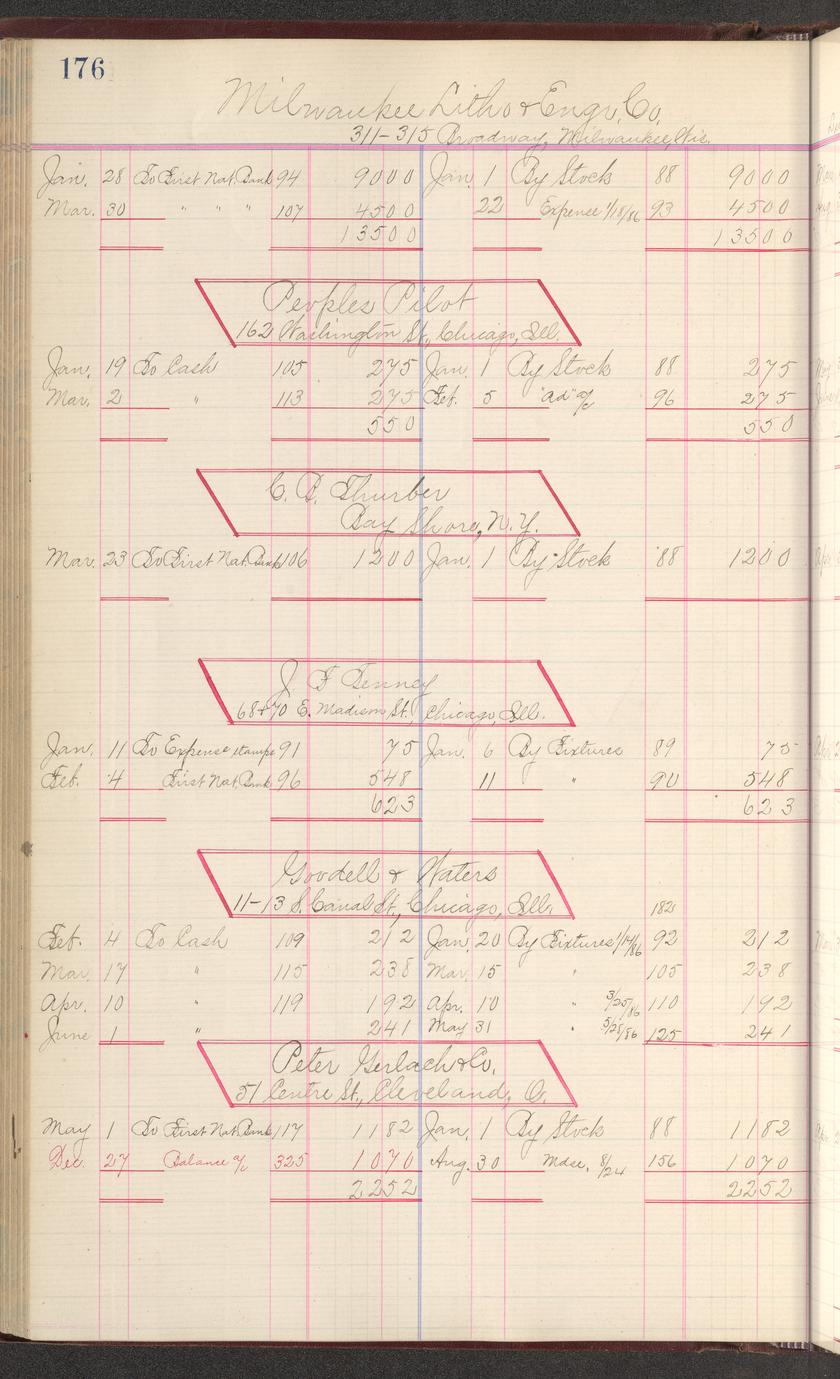 176
Milwaukee Litho & Engr. Co.
311-315 Broadway, Milwaukee, Wis.
Jan. 28 To First Nat. Bank 94 9000 Jan. 1 By Stock 88 9000
Mar. 30 " " " 107 4500 22 Expense 1/18/86 93 4500
13500 13500
Peoples Pilot
162 Washington St., Chicago, Ill.
Jan. 19 To Cash 105 275 Jan. 1 By Stock 88 275
Mar. 2 " 113 275 Feb. 5 "Ad" a/c 96 275
550 550
Thurber
Bay Shore, N.Y.
Mar. 23 To First Nat. Bank 106 1200 Jan. 1 By Stock 88 1200
J. F. Tenney
68 & 70 E. Madison St. Chicago, Ill.
Jan. 11 To Expense stamps 91 75 Jan. 6 By Fixtures 89 75
Feb. 4 First Nat. Bank 96 548 11 " 90 548
623 623
Goodell & Waters
11-13 S. Canal St., Chicago, Ill. 182
Feb. 4 To Cash 109 212 Jan. 20 By Fixtures 1/14/86 92 212
Mar. 17 " 115 238 Mar. 15 " 105 238
Apr. 10 " 119 192 Apr. 10 " 3/25/86 110 192
June 1 " 241 May 31 " 5/28/86 125 241
Peter Gerlach & Co.
51 Centre St., Cleveland, O.
May 1 To First Nat. Bank 117 1182 Jan. 1 By Stock 88 1182
Dec. 27 Balance a/c 325 1070 Aug. 30 Mdse. 8/24 156 1070
2252 2252